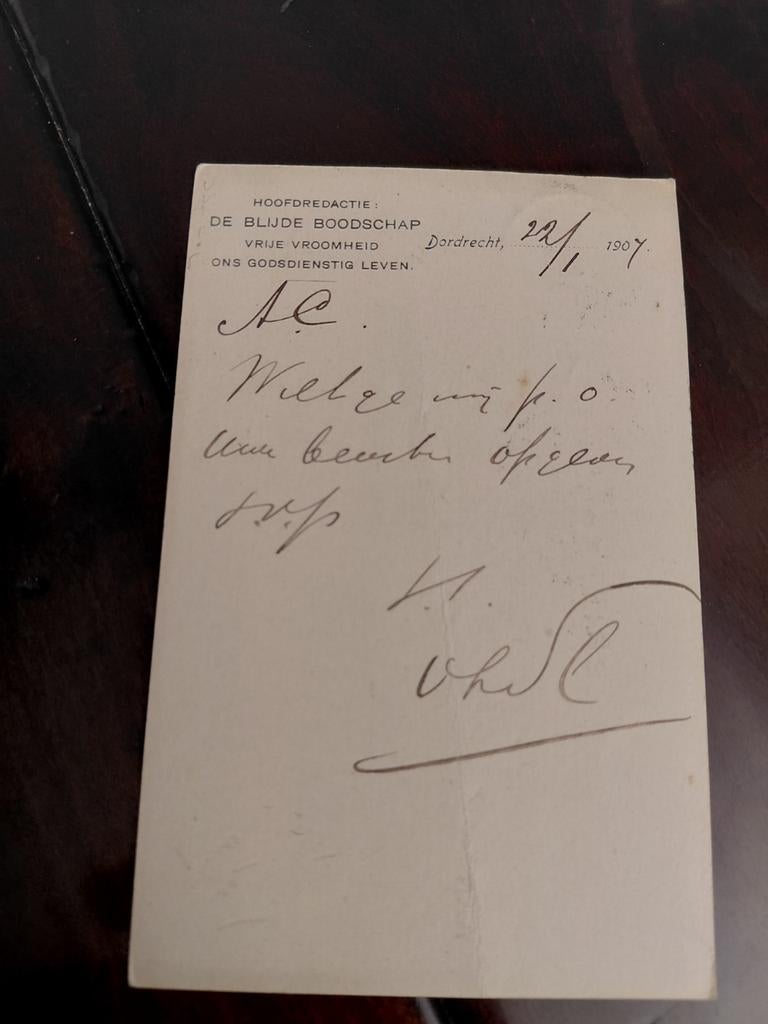 HOOFDREDACTIE:
DE BLIJDE BOODSCHAP
VRIJE VROOMHEID
ONS GODSDIENSTIG LEVEN.
Dordrecht, 22/1 1907.
A.C.
Wilt ge mij p. o.
opgeven
s.v.p
t.t.